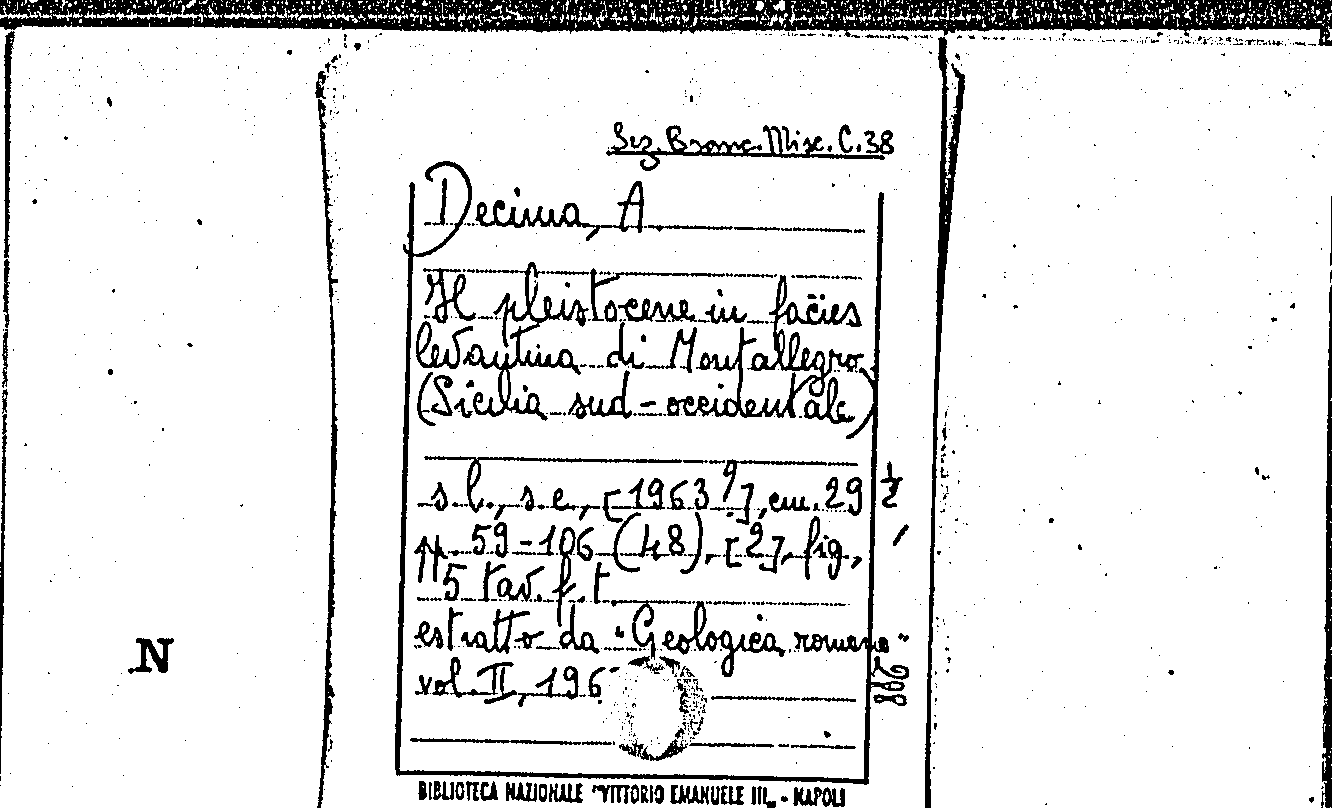 Sez. Branc. Misc. C. 38
Decima, A.
Il pleistocene in facies
levantina di Montallegro
(Sicilia sud-occidentale)
s.l., s.e., [1963?], cm. 29 1/2,
pp. 59-106 (48), [2], fig.,
5 tav. f. t.
estratto da "Geologica romana"
vol. II, 196
N
BIBLIOTECA NAZIONALE "VITTORIO EMANUELE III" - NAPOLI